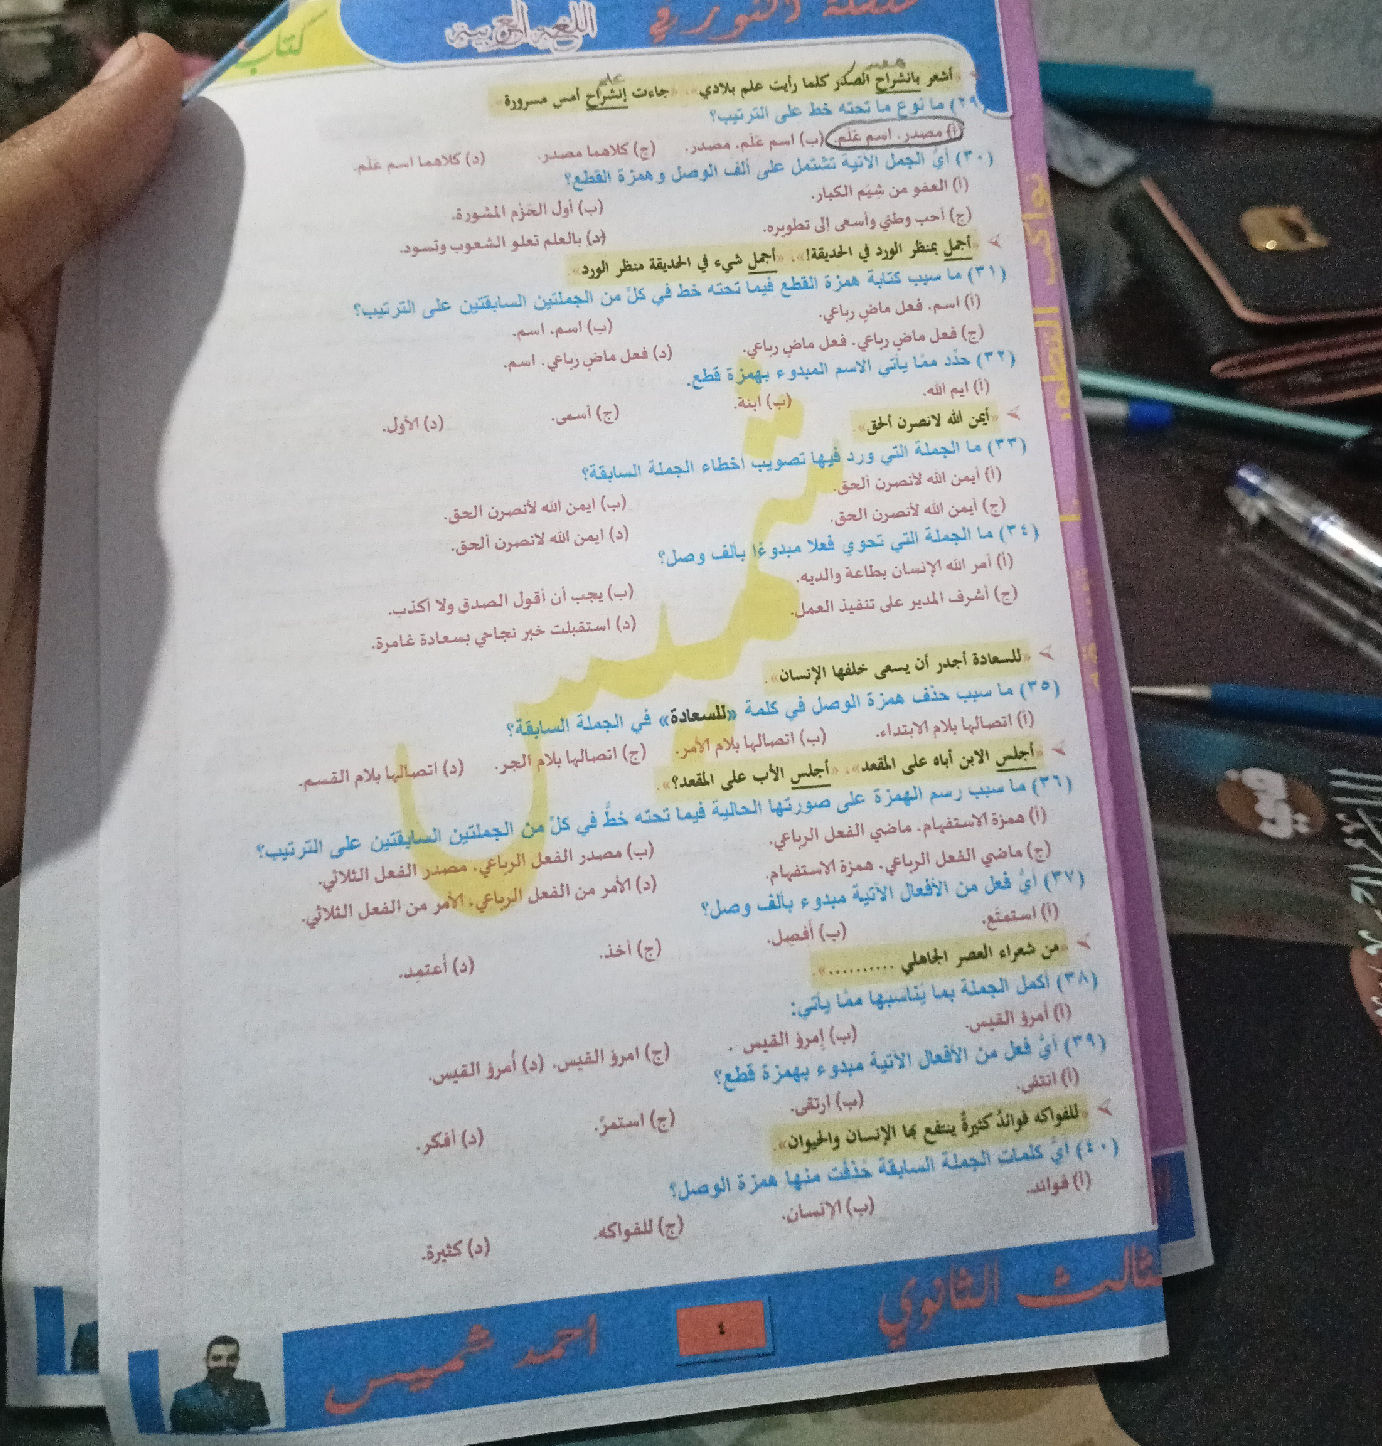 سلسلة النور في
اللغة العربية
كتاب
مصدر
علم
«أشعر بانشراح الصدر كلما رأيت علم بلادي»، «جاءت إنشراح أمس مسرورة»
(٢٩) ما نوع ما تحته خط على الترتيب؟
(أ) مصدر. اسم عَلَم. (ب) اسم عَلَم. مصدر. (ج) كلاهما مصدر. (د) كلاهما اسم عَلَم.
(٣٠) أيُّ الجمل الآتية تشتمل على ألف الوصل وهمزة القطع؟
(أ) العفو من شِيَم الكبار. (ب) أول الحَزْم المشورة.
(ج) أحب وطني وأسعى إلى تطويره. (د) بالعلم تعلو الشعوب وتسود.
«أجمل بمنظر الورد في الحديقة!»، «أجمل شيء في الحديقة منظر الورد»
(٣١) ما سبب كتابة همزة القطع فيما تحته خط في كلٍّ من الجملتين السابقتين على الترتيب؟
(أ) اسم. فعل ماضٍ رباعي. (ب) اسم. اسم.
(ج) فعل ماضٍ رباعي. فعل ماضٍ رباعي. (د) فعل ماضٍ رباعي. اسم.
(٣٢) حدِّد ممَّا يأتي الاسم المبدوء بهمزة قطع.
(أ) ايم الله. (ب) ابنة. (ج) أسمى. (د) الأول.
«أيمن الله لانصرن ألحق».
(٣٣) ما الجملة التي ورد فيها تصويب أخطاء الجملة السابقة؟
(أ) أيمن الله لأنصرن ألحق. (ب) ايمن الله لأنصرن الحق.
(ج) أيمن الله لأنصرن الحق. (د) ايمن الله لانصرن ألحق.
(٣٤) ما الجملة التي تحوي فعلًا مبدوءًا بألف وصل؟
(أ) أمر الله الإنسان بطاعة والديه. (ب) يجب أن أقول الصدق ولا أكذب.
(ج) أشرف المدير على تنفيذ العمل. (د) استقبلت خبر نجاحي بسعادة غامرة.
«للسعادة أجدر أن يسعى خلفها الإنسان».
(٣٥) ما سبب حذف همزة الوصل في كلمة «للسعادة» في الجملة السابقة؟
(أ) اتصالها بلام الابتداء. (ب) اتصالها بلام الأمر. (ج) اتصالها بلام الجر. (د) اتصالها بلام القسم.
«أجلس الابن أباه على المقعد»، «أجلس الأب على المقعد؟».
(٣٦) ما سبب رسم الهمزة على صورتها الحالية فيما تحته خطٌّ في كلٍّ من الجملتين السابقتين على الترتيب؟
(أ) همزة الاستفهام. ماضي الفعل الرباعي. (ب) مصدر الفعل الرباعي. مصدر الفعل الثلاثي.
(ج) ماضي الفعل الرباعي. همزة الاستفهام. (د) الأمر من الفعل الرباعي. الأمر من الفعل الثلاثي.
(٣٧) أيُّ فعل من الأفعال الآتية مبدوء بألف وصل؟
(أ) استمتَع. (ب) أَفصِل. (ج) أخذ. (د) أَعتمِد.
«من شعراء العصر الجاهلي ..........».
(٣٨) أكمل الجملة بما يُناسبها ممَّا يأتي:
(أ) أمرؤ القيس. (ب) إمرؤ القيس. (ج) امرؤ القيس. (د) أُمرؤ القيس.
(٣٩) أيُّ فعل من الأفعال الآتية مبدوء بهمزة قطع؟
(أ) انتقى. (ب) ارتقى. (ج) استمرَّ. (د) أفكر.
«للفواكه فوائدُ كثيرةٌ ينتفع بها الإنسان والحيوان».
(٤٠) أيُّ كلمات الجملة السابقة حُذفت منها همزة الوصل؟
(أ) فوائد. (ب) الإنسان. (ج) للفواكه. (د) كثيرة.
الثالث الثانوي
٤
أحمد شميس